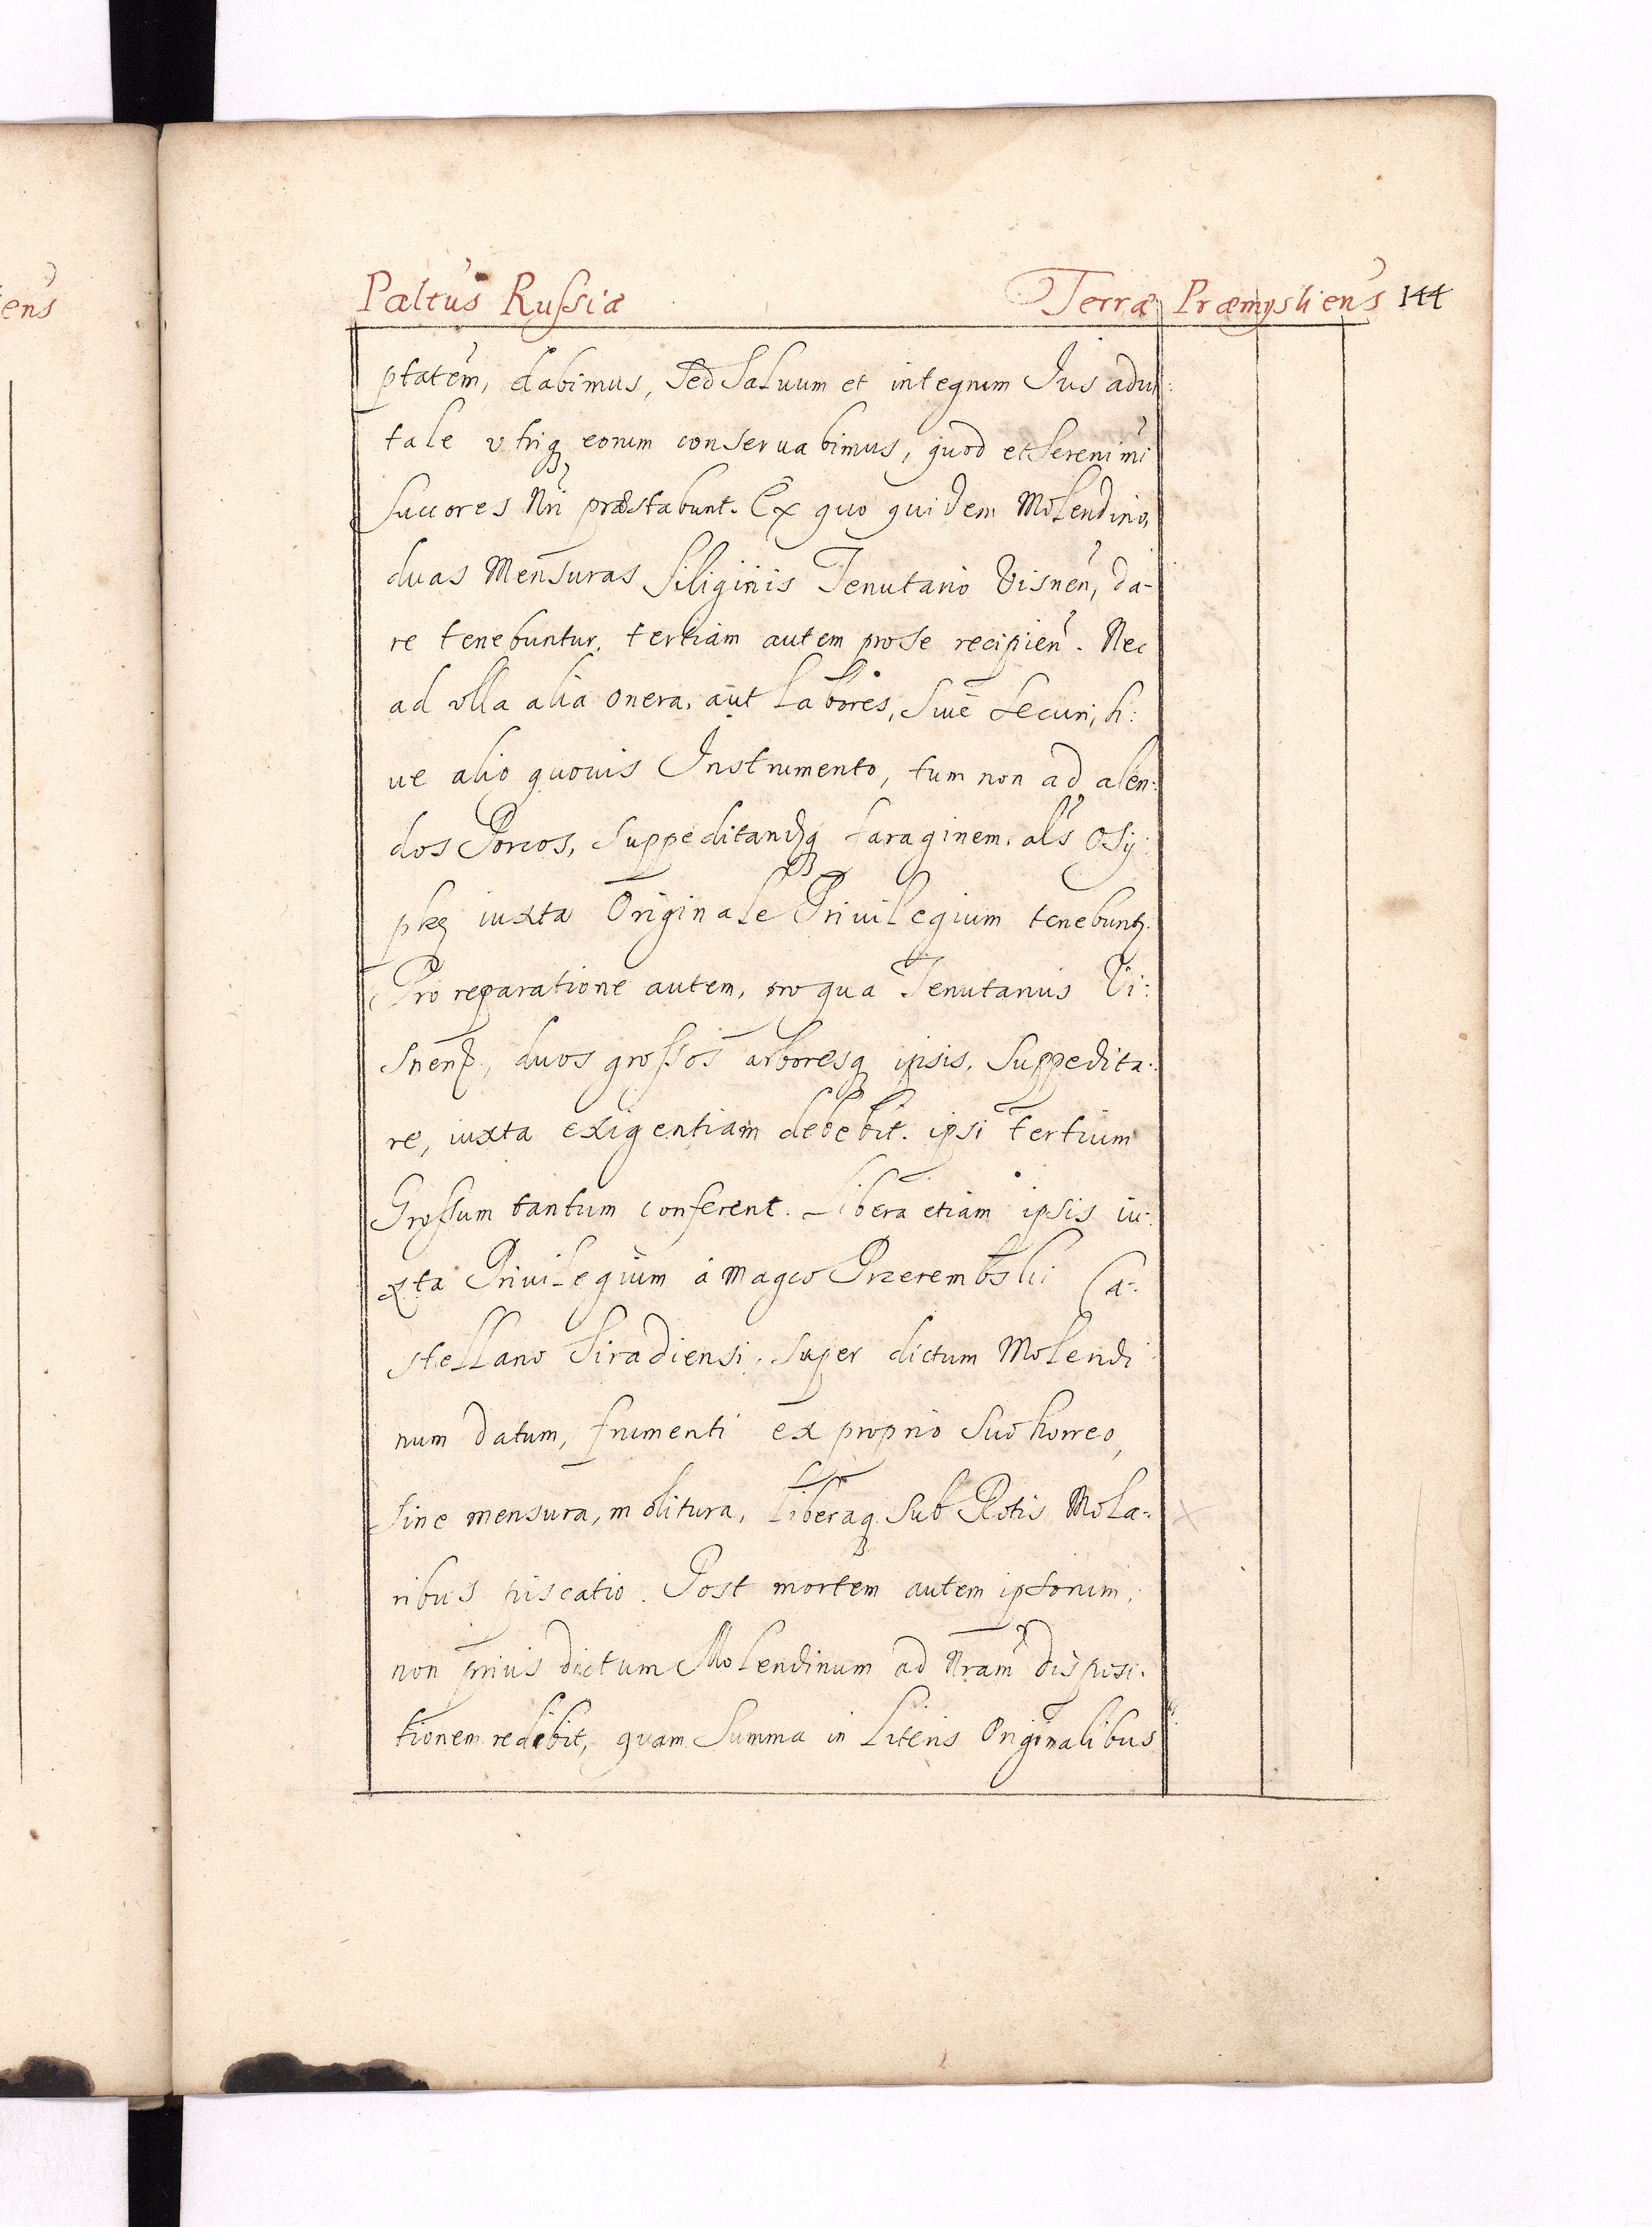 Paltus Russiæ Terræ Præmysliens 144
ptatem, dabimus, sed saluum et integrum Jus adui:
tale vtriq eorum conseruabimus, quod et Serenimi
Succores Nri præstabunt. Ex quo quidem Molendino,
duas Mensuras siliginis Tenutario Visnen, da-
re tenebuntur, tertiam autem pro se recipien. Nec
ad vlla alia onera, aut labores, siue securi, si:
ue alio quouis Instrumento, tum non ad alen:
dos Porcos, suppeditandq faraginem, als Osy:
pkę iuxta Originale Priuilegium tenebunt.
Pro reparatione autem, pro qua Tenutarius Vi:
snens, duos grossos arboresq ipsis, suppedita:
re, iuxta exigentiam debebit. ipsi tertium
Grossum tantum conferent. Libera etiam ipsis iu:
xta Priuilegium á Magco Przerembski Ca:
stellano Siradiensi, super dictum Molendi
num datum, frumenti ex proprio suo horreo,
sine mensura, molitura, liberaq sub Rotis Mola:
ribus piscatio. Post mortem autem ipsorum,
non prius dictum Molendinum ad Nram disposi:
tionem redibit, quam summa in Literis Originalibus
ens